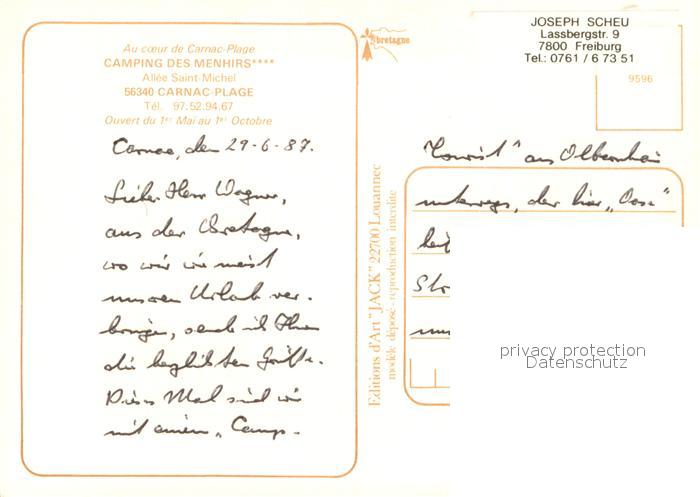 Au cœur de Carnac-Plage
CAMPING DES MENHIRS****
Allée Saint-Michel
56340 CARNAC-PLAGE
Tél. 97.52.94.67
Ouvert du 1er Mai au 1er Octobre
Carnac, den 29-6-87.
Lieber Herr Wagner,
aus der Bretagne,
wo wir wie meist
unseren Urlaub ver-
bringen, sende ich Ihnen
die herzlichsten Grüße.
Dieses Mal sind wir
mit einem „Camp-
bretagne
Editions d'Art "JACK" 22700 Louannec
modèle déposé - reproduction interdite
JOSEPH SCHEU
Lassbergstr. 9
7800 Freiburg
Tel.: 0761 / 6 73 51
9596
Tourist" aus
unterwegs, der hier
privacy protection
Datenschutz